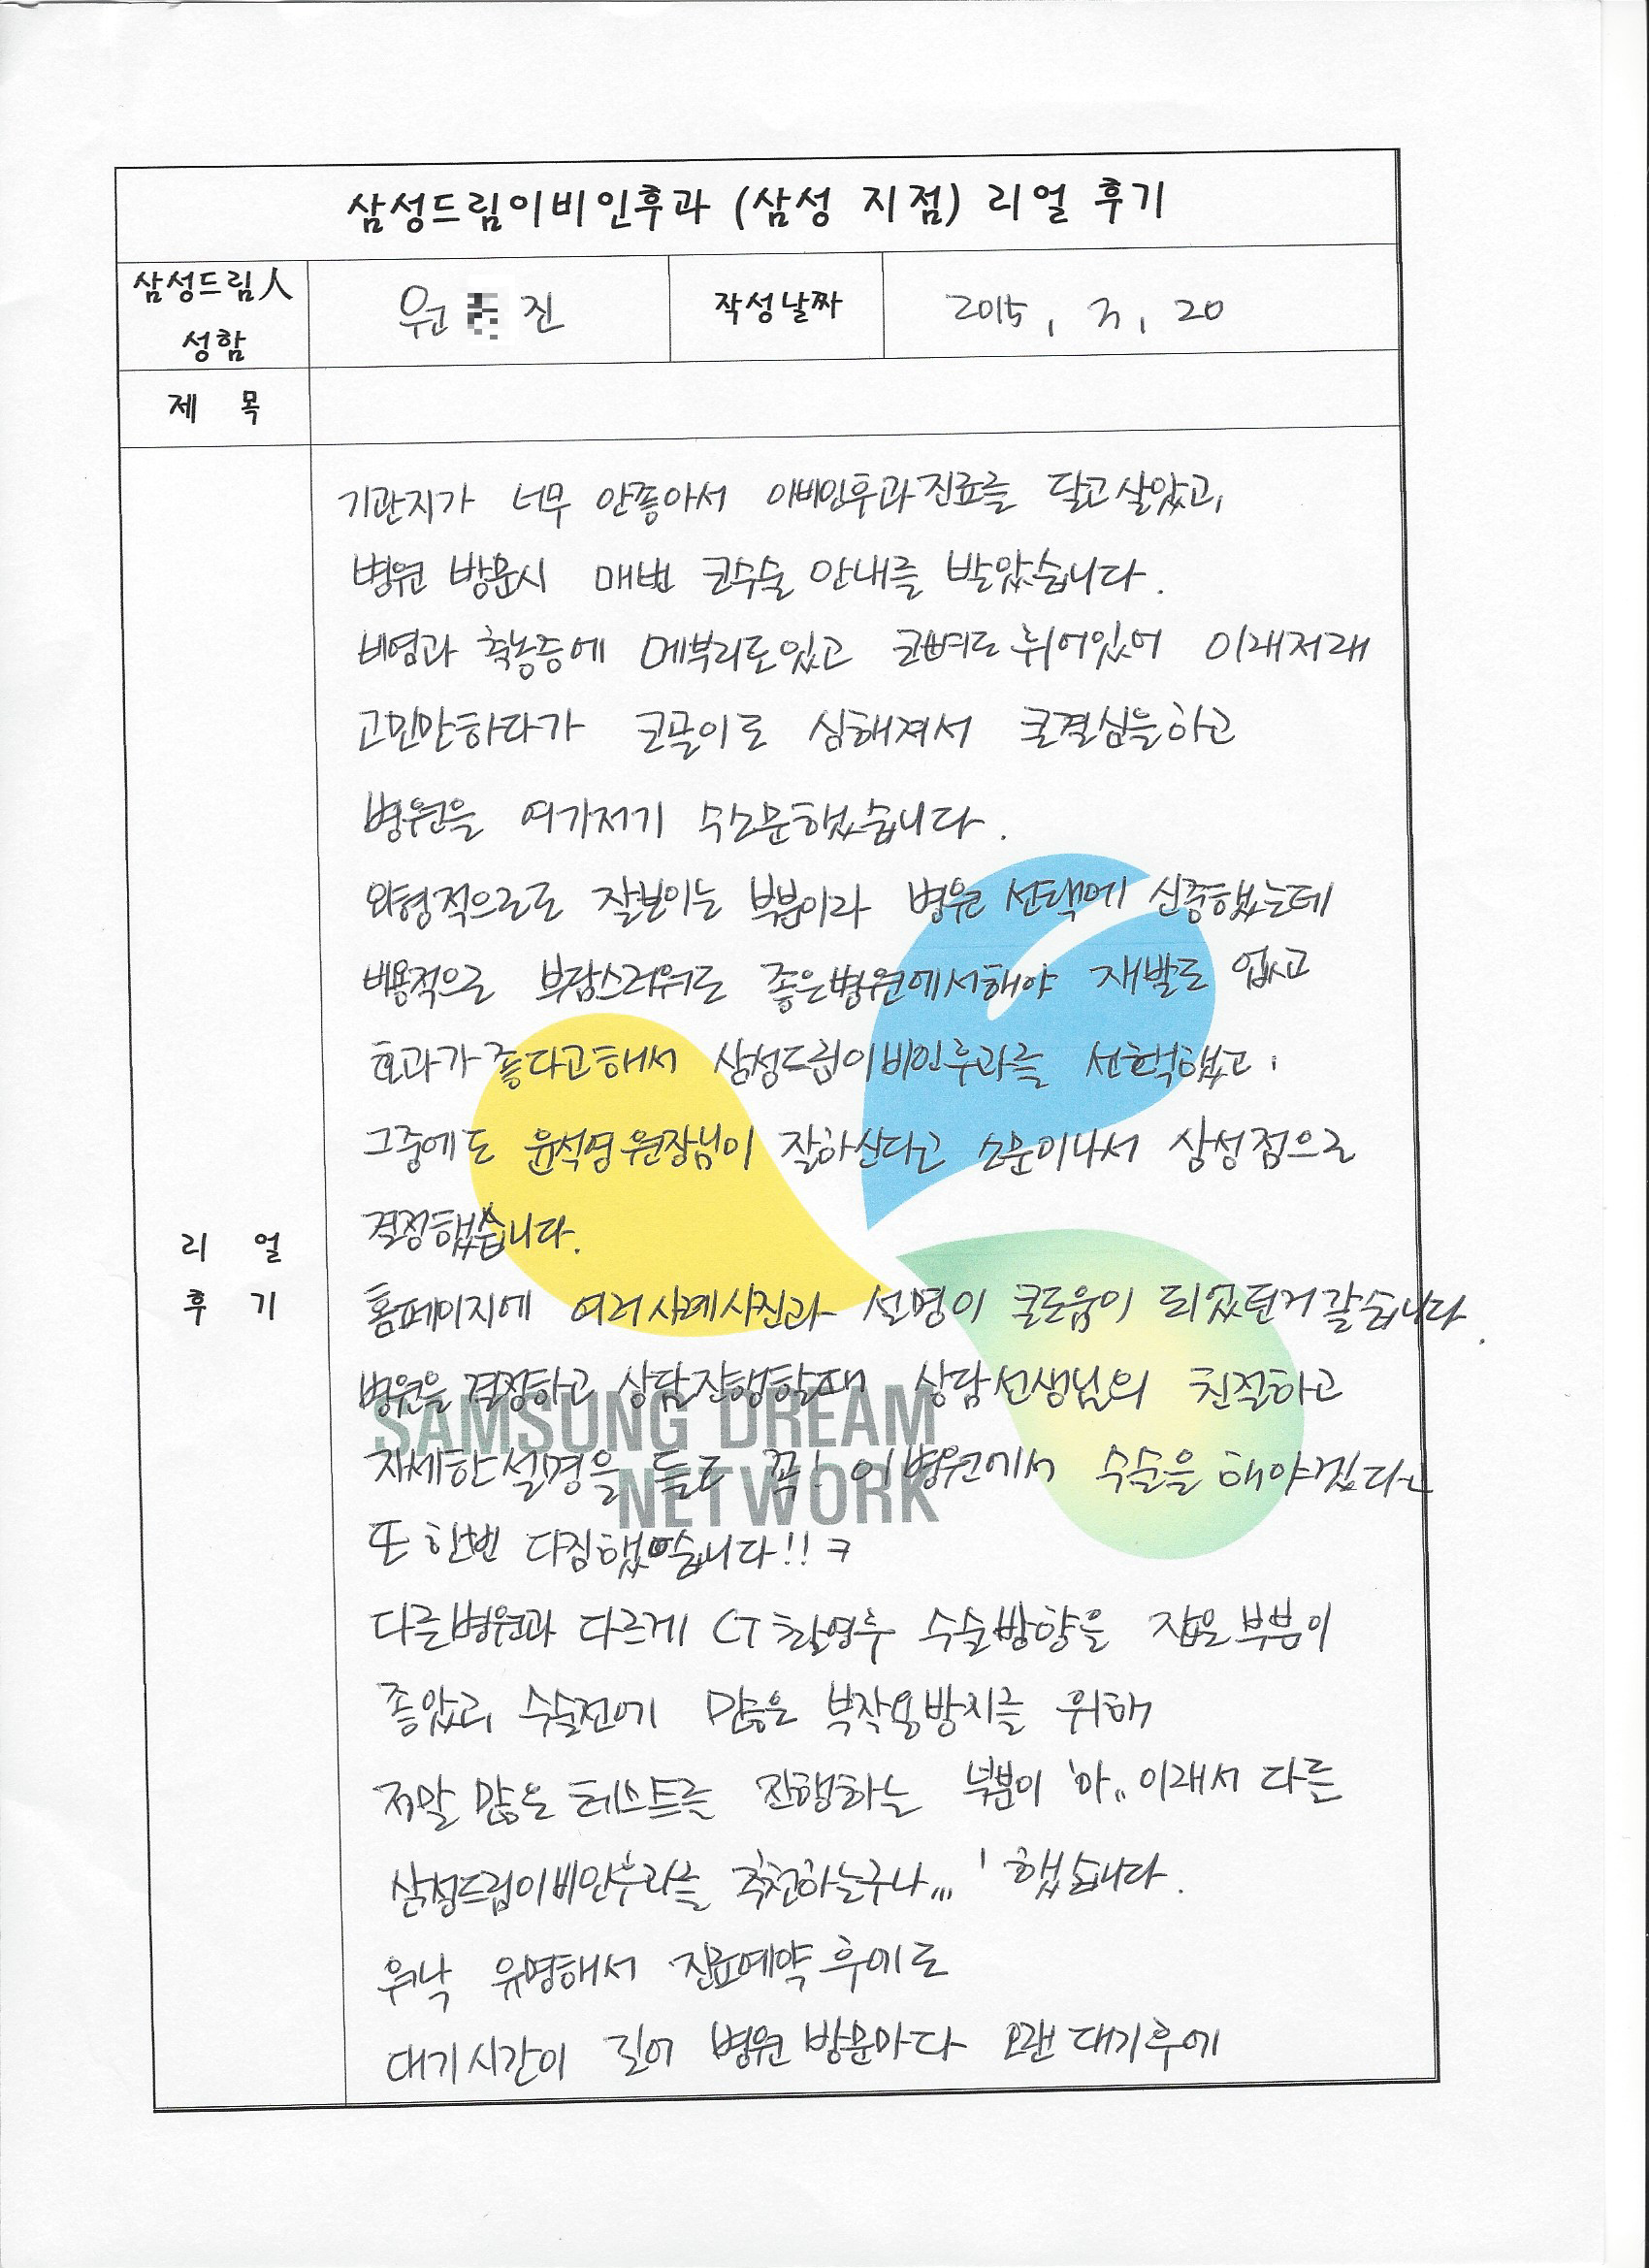 삼성드림이비인후과 (삼성 지점) 리얼 후기
삼성드림人
성함
원 진
작성날짜
2015. 3. 20
제 목
기관지가 너무 안좋아서 이비인후과진료를 달고살았고,
병원 방문시 매번 코수술 안내를 받았습니다.
비염과 축농증에 메부리도있고 코뼈도 휘어있어 이래저래
고민만하다가 코골이도 심해져서 큰결심을하고
병원을 여기저기 수소문했습니다.
외형적으로도 잘보이는 부분이라 병원 선택에 신중했는데
비용적으로 부담스러워도 좋은병원에서해야 재발도 없고
효과가 좋다고해서 삼성드림이비인후과를 선택했고,
그중에도 윤석영원장님이 잘하신다고 소문이나서 삼성점으로
결정했습니다.
리 얼
후 기
홈페이지에 여러사례사진과 설명이 큰도움이 되었던거같습니다.
병원을 결정하고 상담진행할때 상담선생님의 친절하고
자세한설명을 듣고 꼭! 이병원에서 수술을 해야겠다고
또 한번 다짐했습니다!! ㅋ
다른병원과 다르게 CT촬영후 수술방향을 잡은부분이
좋았고, 수술전에 많은 부작용방지를 위해
정말 많은 테스트를 진행하는 부분이 '아.. 이래서 다른
삼성드림이비인후과를 추천하는구나...' 했습니다.
SAMSUNG DREAM
NETWORK
워낙 유명해서 진료예약후에도
대기시간이 길어 병원 방문마다 오랜 대기후에